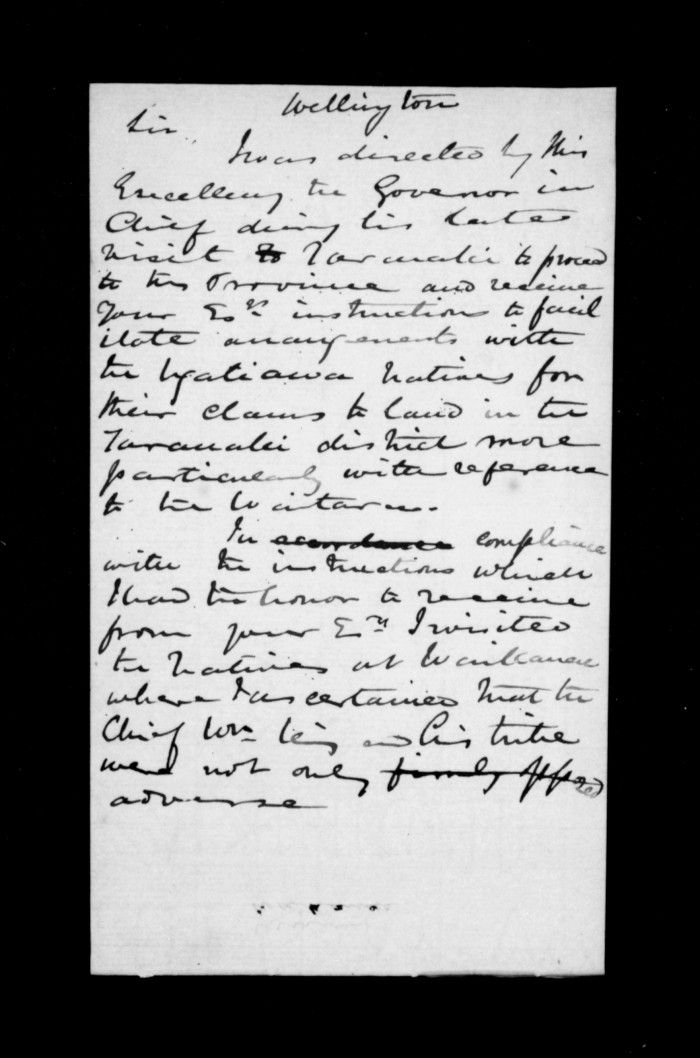 Wellington
Sir
I was directed by His
Excellency the Governor in
Chief during his late
visit to Taranaki to proceed
to this Province and receive
your Exy instructions to facil
itate arrangements with
the Ngatiawa Natives for
their claims to land in the
Taranaki district more
particularly with reference
to the Waitara.
In accordance compliance
with the instructions which
I had the honor to receive
from your Exy I visited
the Natives at Waikanae
where I ascertained that the
Chief Wm King and his tribe
were not only firmly opposed
adverse